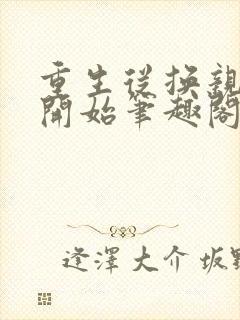 重生從換親
開始筆趣閣
逢澤大介坂野